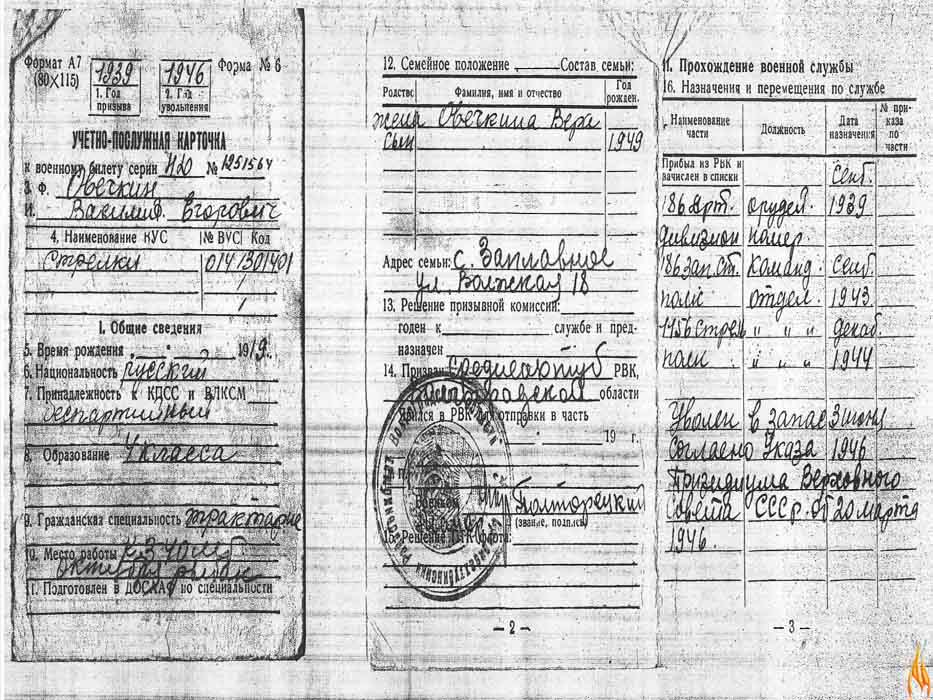 Формат А7
(80×115)
1939
1. Год
призыва
1946
2. Год
увольнения
Форма № 6
УЧЕТНО-ПОСЛУЖНАЯ КАРТОЧКА
к военному билету серии НД № 1251564
3. Ф. Овечкин
И. Василий Егорович
4. Наименование ВУС № ВУС Код
Стрелки 0141301401
I. Общие сведения
5. Время рождения 1919.
6. Национальность русский
7. Принадлежность к КПСС и ВЛКСМ
беспартийный
8. Образование 4 класса
9. Гражданская специальность
10. Место работы
Октября
11. Подготовлен в ДОСААФ по специальности
12. Семейное положение Состав семьи:
Родство Фамилия, имя и отчество Год рожден.
жена Овечкина Вера
Сын 1949
Адрес семьи: с. Заплавное
ул. Волжская 18
13. Решение призывной комиссии:
годен к службе и пред-
назначен
14. Призван Среднеахтуб РВК,
области
Явился в РВК для отправки в часть
19 г.
Полторецкий
(звание, подпись)
15. Решение
— 2 —
II. Прохождение военной службы
16. Назначения и перемещения по службе
Наименование части Должность Дата назначения № при-каза по части
Прибыл из РВК и
зачислен в списки Сент.
186 арт. орудей. 1939
дивизион номер.
186 зап. ст. Команд. Сент.
полк отдел. 1943
1456 стрел " " " декаб.
полк " " 1944
Уволен в запас 3 июня
Согласно Указа 1946
Президиума Верховного
Совета СССР от 20 марта
1946.
— 3 —